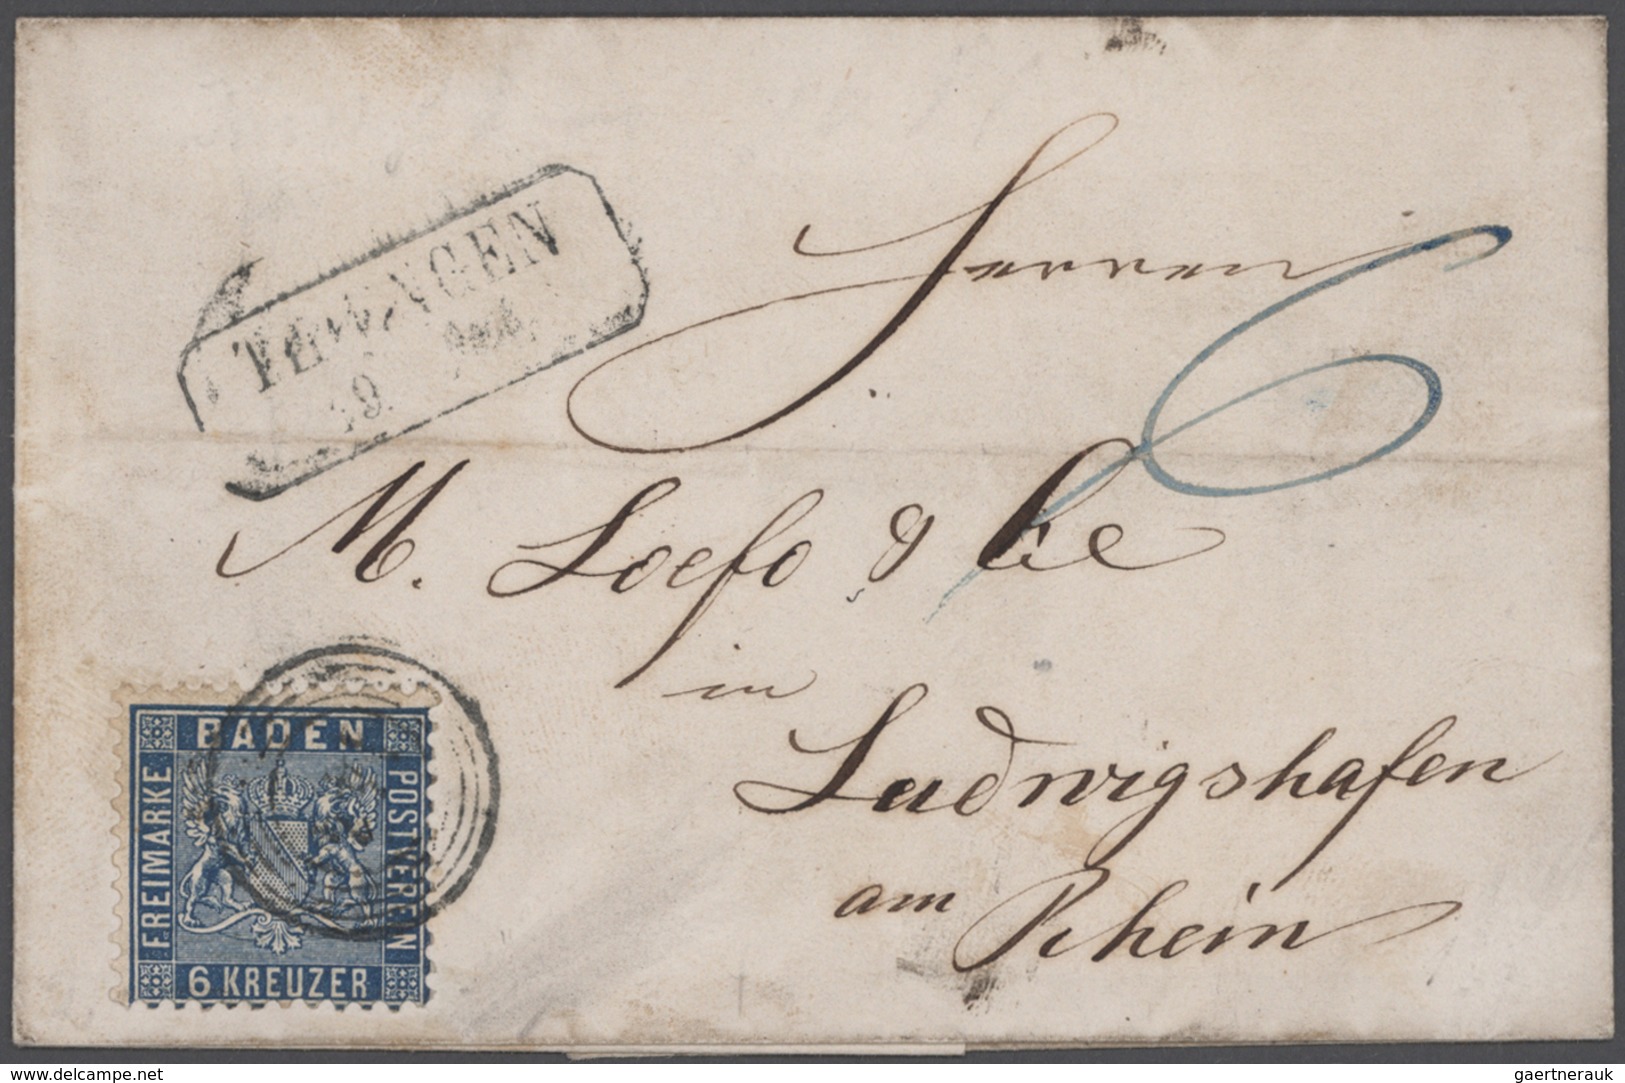 THIENGEN
9.
Herren
6
M. Loefo & Cie
in
Ludwigshafen
am Rhein
BADEN
FREIMARKE
POSTVEREIN
6 KREUZER
delcampe.net
gaertnerauk